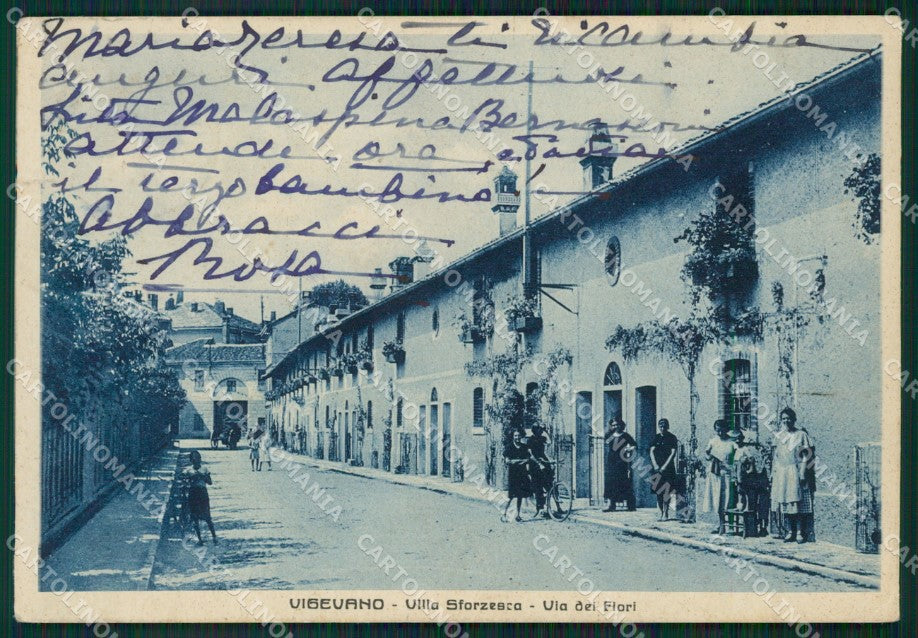 Maria Teresa ti ricambia
auguri affettuosi
Lita Malaspina Bernasconi
attende ora, ed a
il terzo bambino!
Abbracci
Rosa
VIGEVANO - Villa Sforzesca - Via dei Fiori
CARTOLINOMANIA.COM